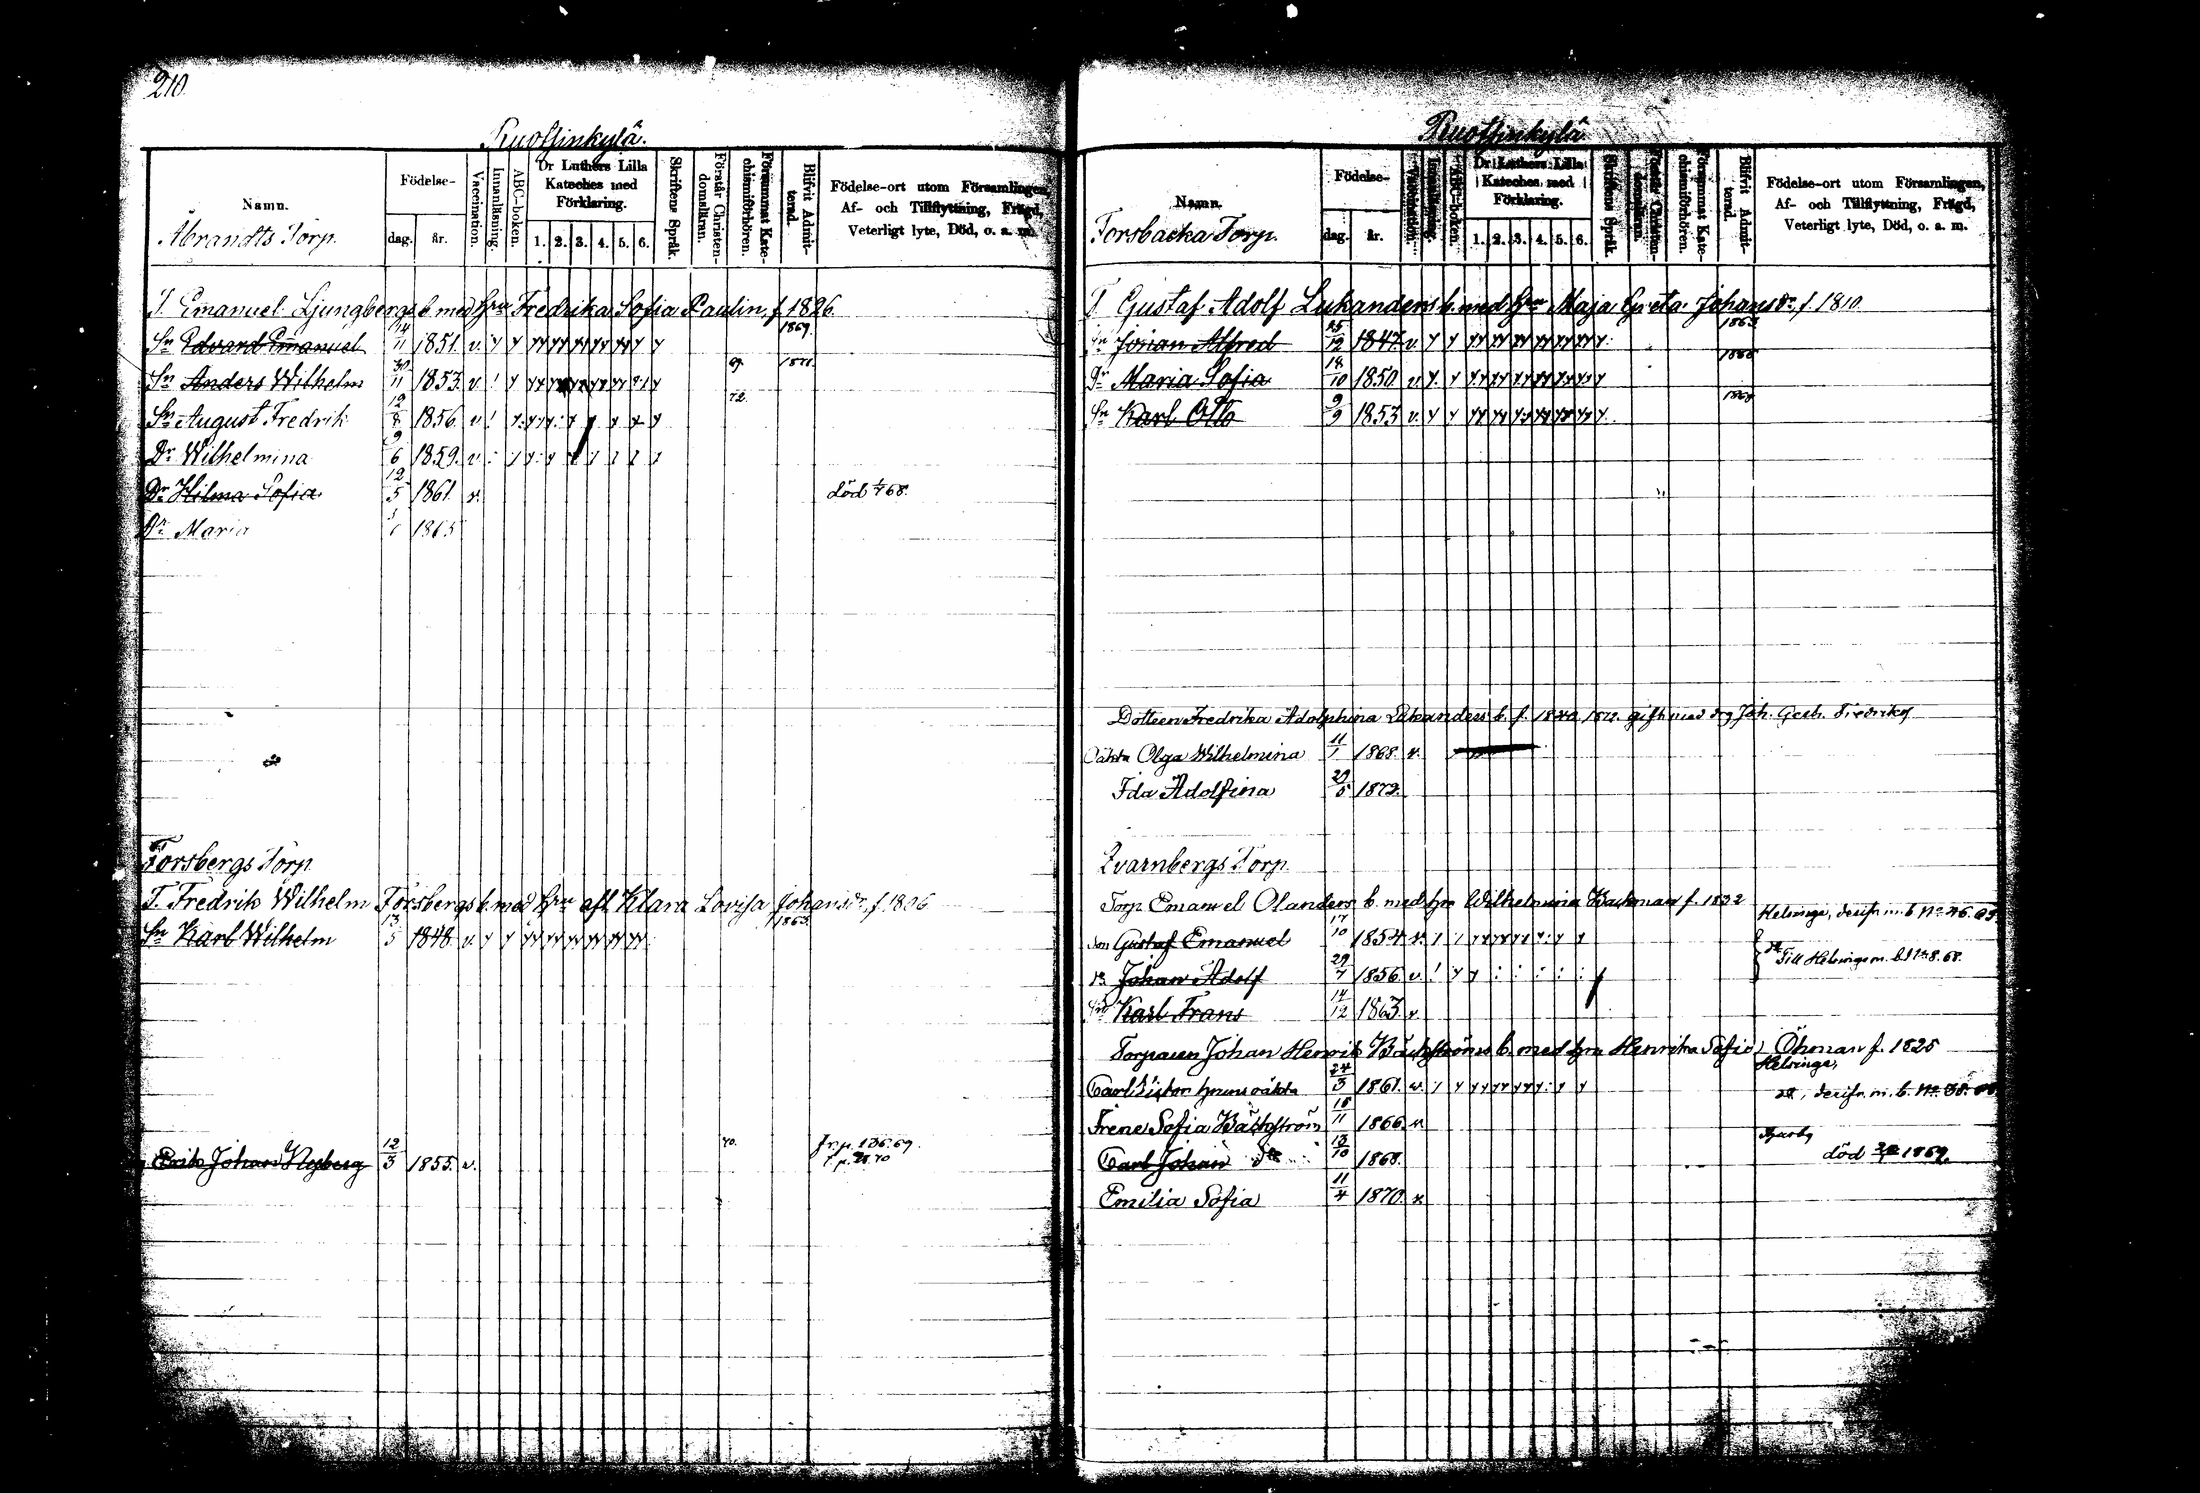 210.
Ruotsinkylä.
Namn.
Åbrandts Torp.
Födelse-
dag. år.
Vaccination.
Innanläsning.
ABC-boken.
Dr Luthers Lilla Kateches med Förklaring.
1. 2. 3. 4. 5. 6.
Skriftens Språk.
Förstår Christendomsläran.
Försummat Katechismiförhören.
Blifvit Admitterad.
Födelse-ort utom Församlingen,
Af- och Tillflyttning, Frägd,
Veterligt lyte, Död, o. a. m.
T. Emanuel Ljungbergs b. med hru Fredrika Sofia Paulin, f. 1826.
Sn Edvard Emanuel 11 1851. v. 1869.
Sn Anders Wilhelm 30/11 1853. v. 1871.
Sn August Fredrik 12/8 1856. v. 72.
Dr Wilhelmina 9/6 1859. v.
Dr Hilma Sofia 12/5 1861. v. död 68.
Dr Maria 1865
Forsbergs Torp.
T. Fredrik Wilhelm Forsbergs b. med hru afl. Klara Lovisa Johansdr, f. 1806
Sn Karl Wilhelm 13/5 1848. v. 1865.
Erik Johan Nyberg 12/3 1855. v. 70. Fr. p. 136.69.
Ruotsinkylä
Namn.
Forsbacka Torp.
Födelse-
dag. år.
Vaccination.
Innanläsning.
ABC-boken.
Dr Luthers Lilla Kateches med Förklaring.
1. 2. 3. 4. 5. 6.
Skriftens Språk.
Förstår Christendomsläran.
Försummat Katechismiförhören.
Blifvit Admitterad.
Födelse-ort utom Församlingen,
Af- och Tillflyttning, Frägd,
Veterligt lyte, Död, o. a. m.
T. Gustaf Adolf Lukanders b. med hru Maja Greta Johansdr, f. 1810.
Sn Alfred 25/12 1847. v.
Dr Maria Sofia 18/10 1850. v.
Sn Karl Otto 9/9 1853. v.
Dottren Fredrika Adolphina Lukanders b. f. 1840 1872. gift med Joh.
oäkta Olga Wilhelmina 11/1 1868. v.
Ida Adolfina 29/5 1872.
Qvarnbergs Torp.
Torp. Emanuel Olanders b. med hru Wilhelmina Backman f. 1832
son Gustaf Emanuel 17/10 1854. v.
Johan Adolf 29/7 1856. v. Till Helsinge m. b.
Sn Karl Frans 14/12 1863. v.
Torparen Johan Henrik Bäckströms b. med hru Henrika Sofia Öhman f. 1825
Helsinge,
Carl hruns oäkta 24/3 1861. v.
Irene Sofia Bäckström 11 1866. v.
Carl Johan 13/10 1868. död 1869.
Emilia Sofia 11/4 1870. v.